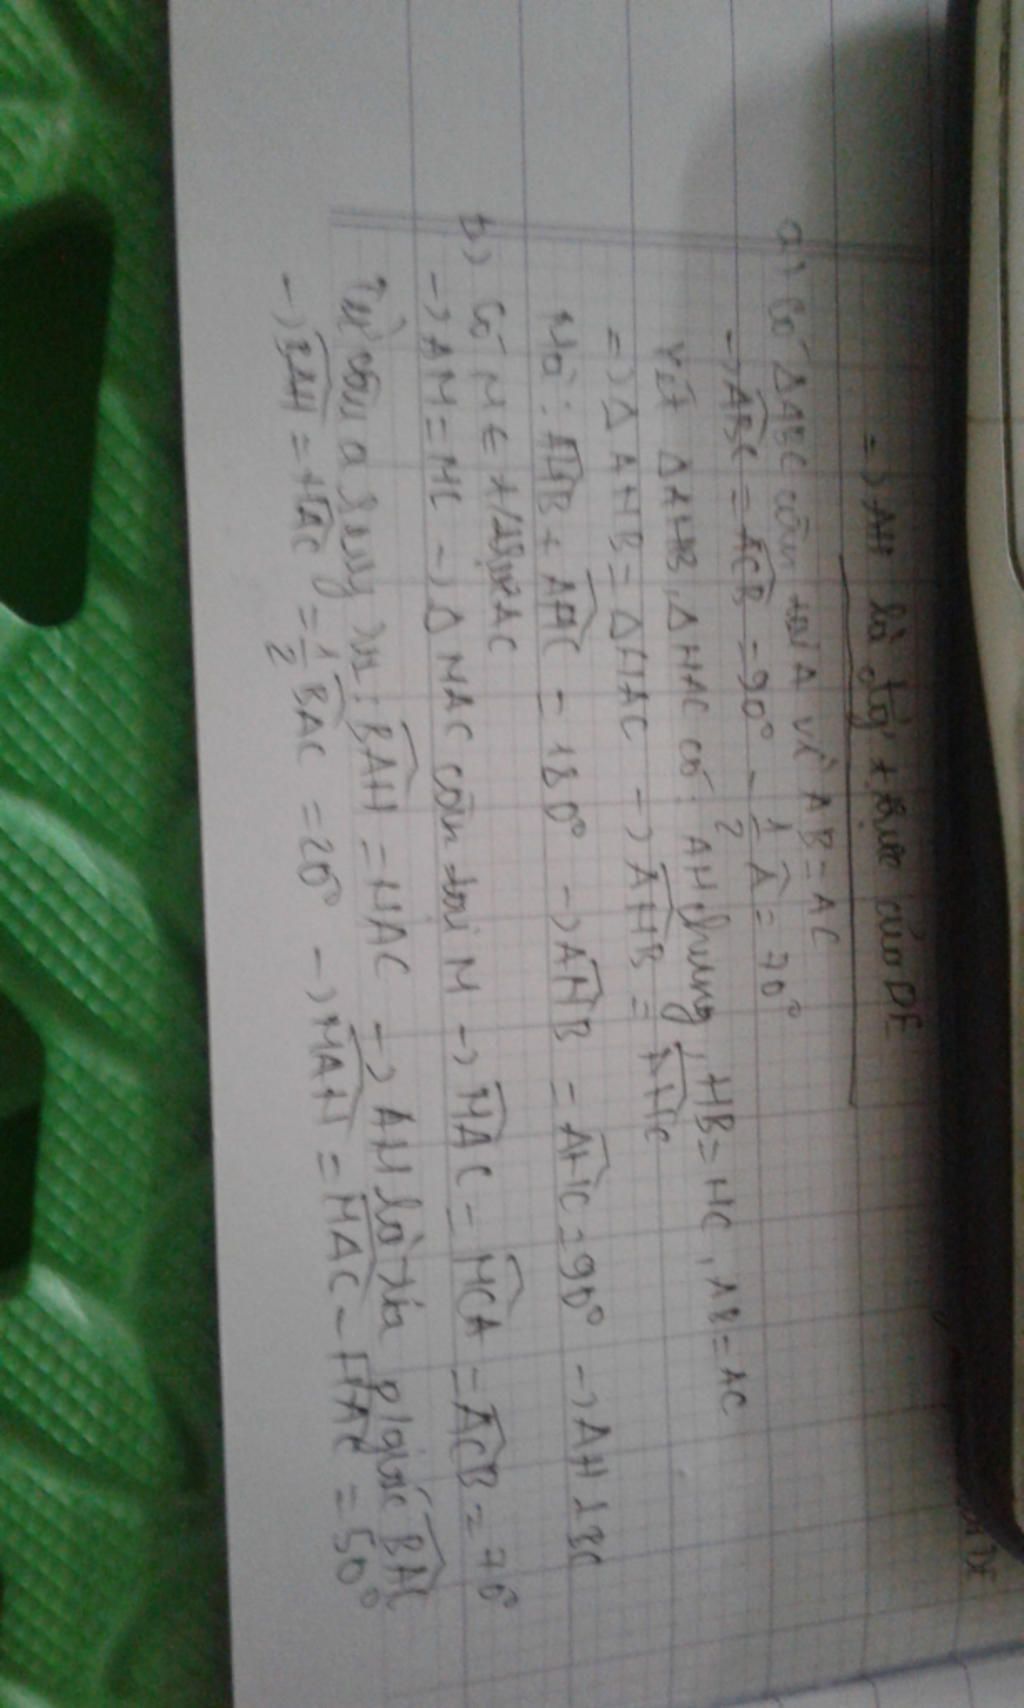 => AH là tg' trực của DE
a) Có ΔABC cân tại A vì AB = AC
-> ABC = ACB = 90° - 1/2 A = 70°
Xét ΔAHB, ΔHAC có: AH chung, HB = HC, AB = AC
=> ΔAHB = ΔHAC -> AHB = AHC
Mà: AHB + AHC = 180° -> AHB = AHC = 90° -> AH ⊥ BC
b) Có M ∈ AC
-> AM = MC -> Δ MAC cân tại M -> MAC = MCA = ACB = 70°
Từ câu a suy ra: BAH = HAC -> AH là tia p/giác BAC
-> BAH = HAC = 1/2 BAC = 20° -> MAH = MAC - HAC = 50°
DE